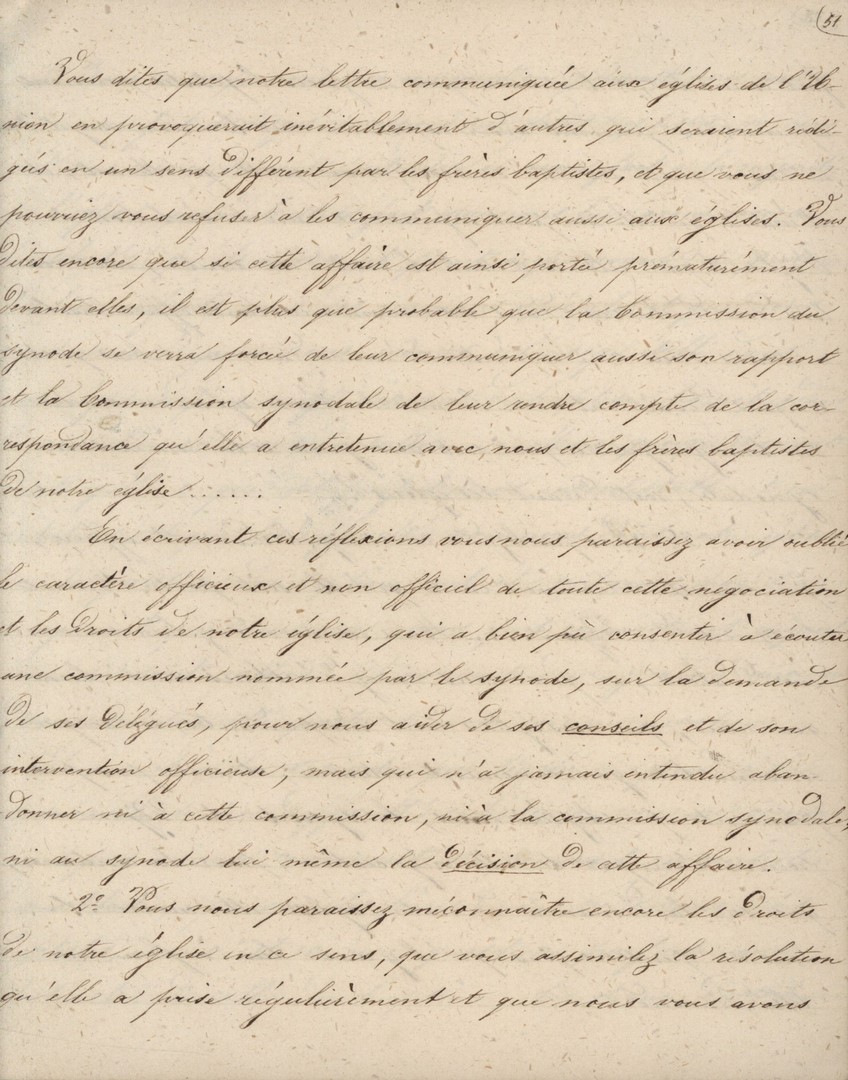 51
Vous dites que notre lettre communiquée aux églises de l'U-
nion en provoquerait inévitablement d'autres qui seraient rédi-
gées en un sens différent par les frères baptistes, et que vous ne
pourriez vous refuser à les communiquer aussi aux églises. Vous
dites encore que si cette affaire est ainsi portée prématurément
devant elles, il est plus que probable que la Commission du
synode se verra forcée de leur communiquer aussi son rapport
et la Commission synodale de leur rendre compte de la cor-
respondance qu'elle a entretenue avec nous et les frères baptistes
de notre église......
En écrivant ces réflexions vous nous paraissez avoir oublié
le caractère officieux et non officiel de toute cette négociation
et les droits de notre église, qui a bien pû consentir à écouter
une commission nommée par le synode, sur la demande
de ses délégués, pour nous aider de ses conseils et de son
intervention officieuse, mais qui n'a jamais entendu aban-
donner ni à cette commission, ni à la commission synodale,
ni au synode lui même la décision de cette affaire.
2° Vous nous paraissez méconnaître encore les droits
de notre église en ce sens, que vous assimilez la résolution
qu'elle a prise régulièrement et que nous vous avons